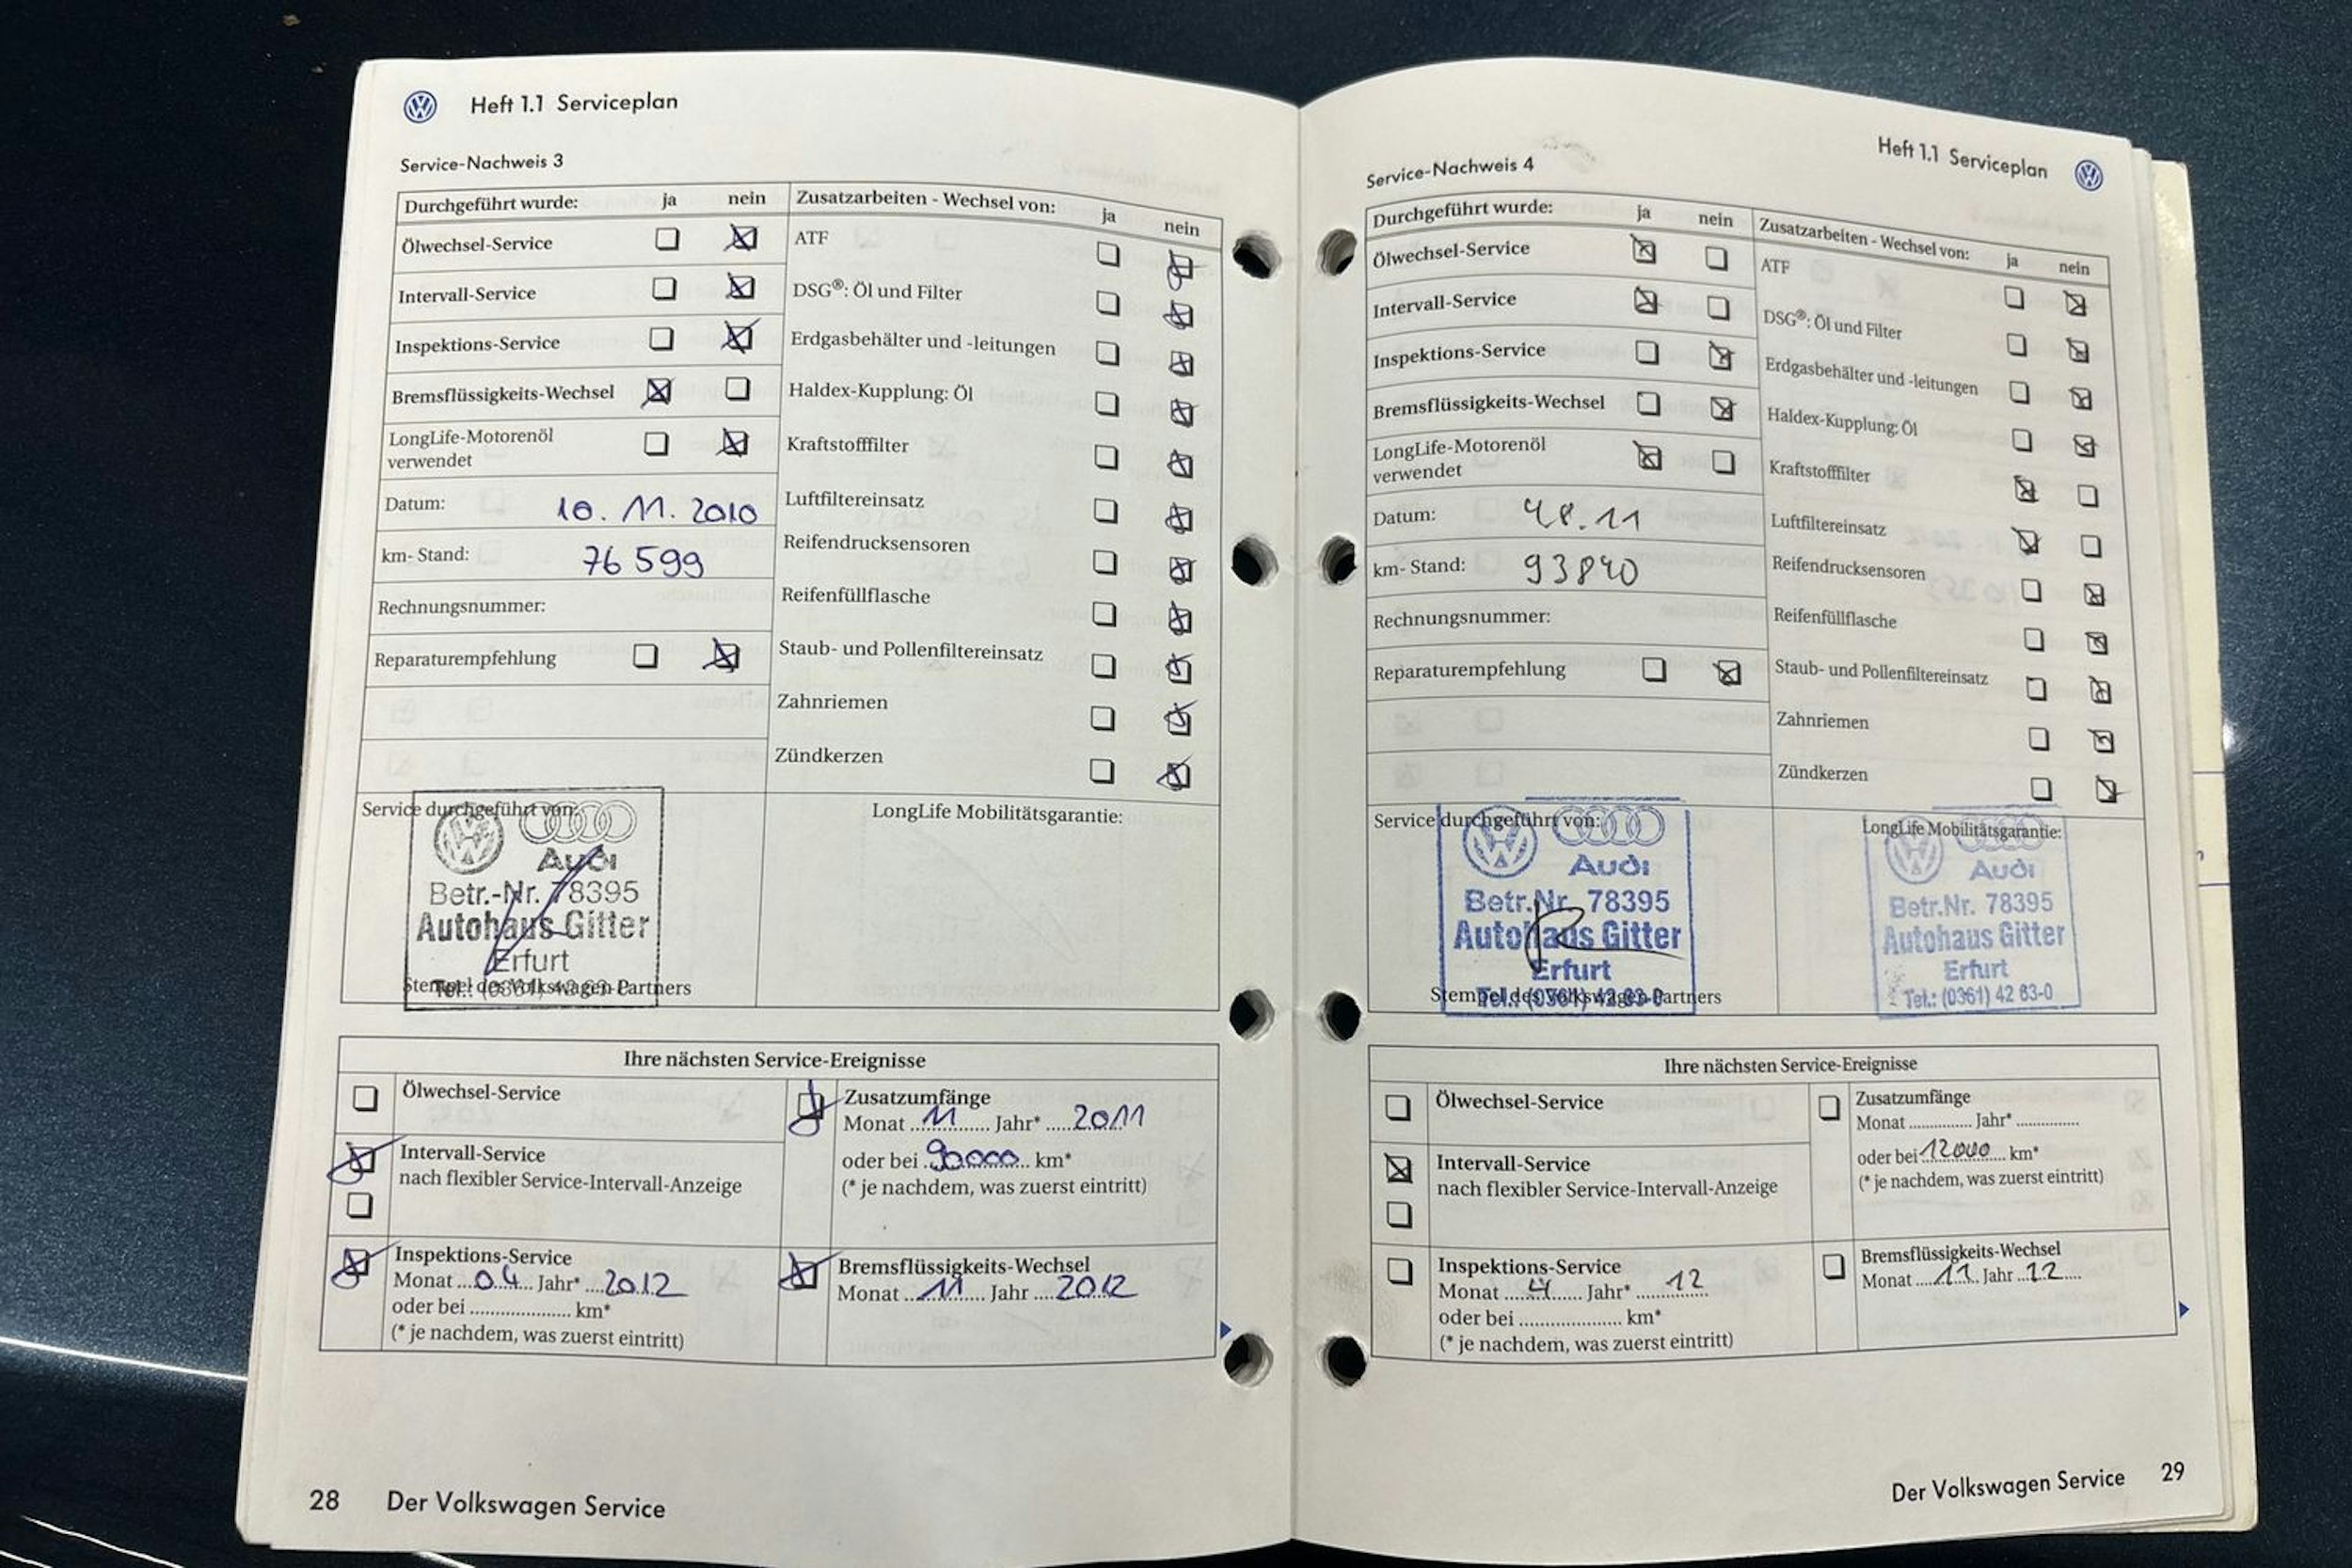 Heft 1.1 Serviceplan
Service-Nachweis 3
Durchgeführt wurde: ja nein
Ölwechsel-Service
Intervall-Service
Inspektions-Service
Bremsflüssigkeits-Wechsel
LongLife-Motorenöl
verwendet
Datum: 10. 11. 2010
km- Stand: 76 599
Rechnungsnummer:
Reparaturempfehlung
Zusatzarbeiten - Wechsel von: ja nein
ATF
DSG®: Öl und Filter
Erdgasbehälter und -leitungen
Haldex-Kupplung: Öl
Kraftstofffilter
Luftfiltereinsatz
Reifendrucksensoren
Reifenfüllflasche
Staub- und Pollenfiltereinsatz
Zahnriemen
Zündkerzen
Service durchgeführt von:
Audi
Betr.-Nr. 78395
Autohaus Gitter
Erfurt
Stempel des Volkswagen-Partners
LongLife Mobilitätsgarantie:
Ihre nächsten Service-Ereignisse
Ölwechsel-Service
Intervall-Service
nach flexibler Service-Intervall-Anzeige
Inspektions-Service
Monat 04 Jahr* 2012
oder bei .................... km*
(* je nachdem, was zuerst eintritt)
Zusatzumfänge
Monat 11 Jahr* 2011
oder bei 90000 km*
(* je nachdem, was zuerst eintritt)
Bremsflüssigkeits-Wechsel
Monat 11 Jahr 2012
28 Der Volkswagen Service
Heft 1.1 Serviceplan
Service-Nachweis 4
Durchgeführt wurde: ja nein
Ölwechsel-Service
Intervall-Service
Inspektions-Service
Bremsflüssigkeits-Wechsel
LongLife-Motorenöl
verwendet
Datum:
km- Stand: 93840
Rechnungsnummer:
Reparaturempfehlung
Zusatzarbeiten - Wechsel von: ja nein
ATF
DSG®: Öl und Filter
Erdgasbehälter und -leitungen
Haldex-Kupplung: Öl
Kraftstofffilter
Luftfiltereinsatz
Reifendrucksensoren
Reifenfüllflasche
Staub- und Pollenfiltereinsatz
Zahnriemen
Zündkerzen
Service durchgeführt von:
Audi
Betr.Nr. 78395
Autohaus Gitter
Erfurt
Tel.: (0361) 42 63-0
Stempel des Volkswagen-Partners
LongLife Mobilitätsgarantie:
Audi
Betr.Nr. 78395
Autohaus Gitter
Erfurt
Tel.: (0361) 42 63-0
Ihre nächsten Service-Ereignisse
Ölwechsel-Service
Intervall-Service
nach flexibler Service-Intervall-Anzeige
Inspektions-Service
Monat 4 Jahr* 12
oder bei .................... km*
(* je nachdem, was zuerst eintritt)
Zusatzumfänge
Monat ............... Jahr* ...............
oder bei 12000 km*
(* je nachdem, was zuerst eintritt)
Bremsflüssigkeits-Wechsel
Monat 11 Jahr 12
Der Volkswagen Service 29